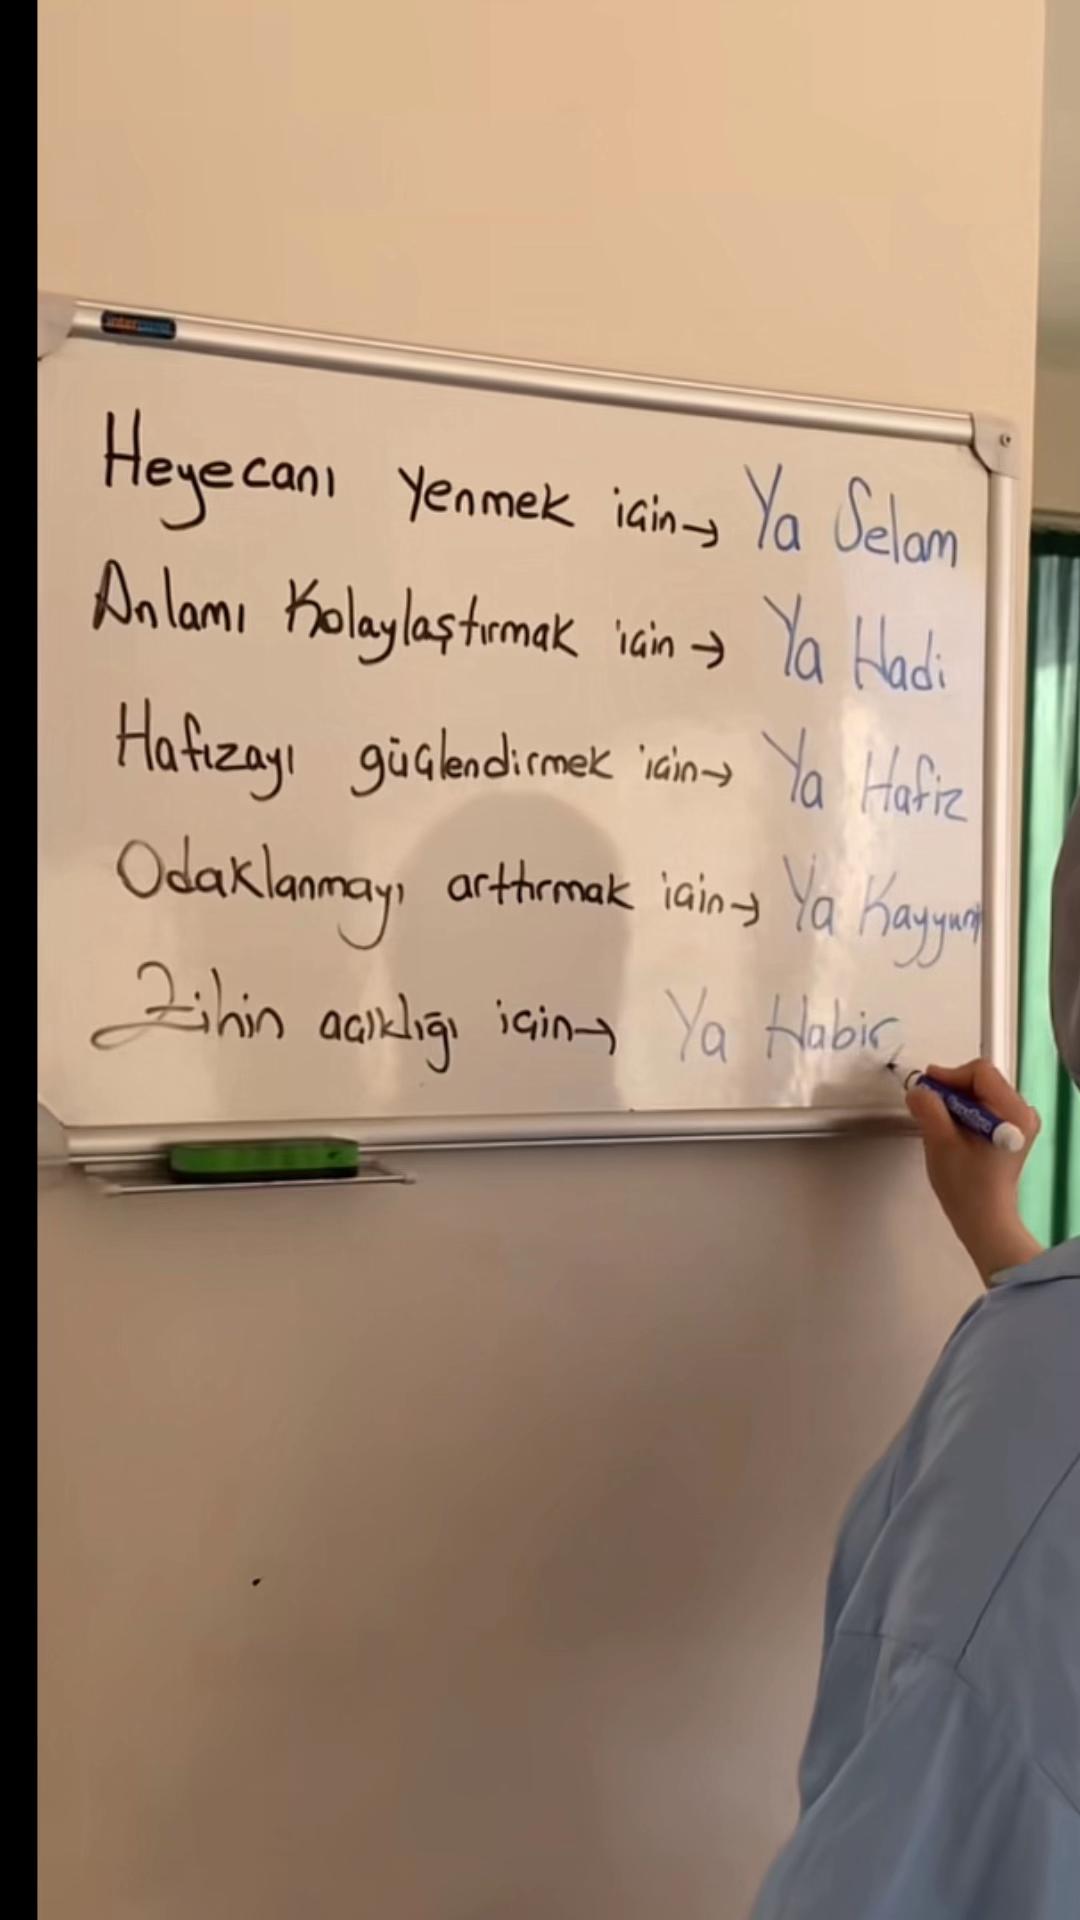 Heyecanı yenmek için → Ya Selam
Anlamı Kolaylaştırmak için → Ya Hadi
Hafızayı güçlendirmek için → Ya Hafiz
Odaklanmayı arttırmak için → Ya Kayyum
Zihin açıklığı için → Ya Habir